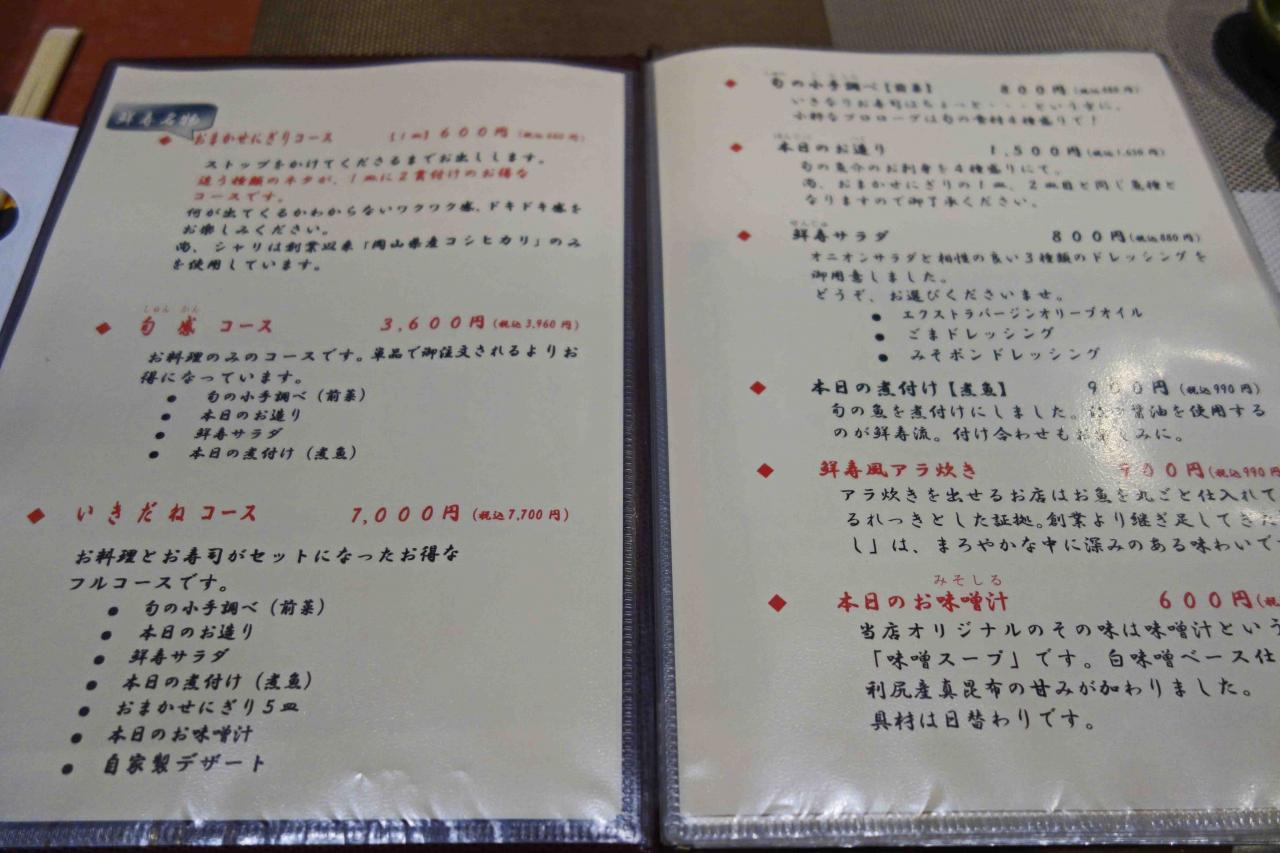 鮮寿名物
おまかせにぎりコース 【1皿】600円(税込660円)
ストップをかけてくださるまでお出しします。
違う種類のネタが、1皿に2貫付けのお得な
コースです。
何が出てくるかわからないワクワク感、ドキドキ感を
お楽しみください。
尚、シャリは創業以来「岡山県産コシヒカリ」のみ
を使用しています。
しゅん かん
旬 感 コース 3,600円(税込3,960円)
お料理のみのコースです。単品で御注文されるよりお
得になっています。
● 旬の小手調べ(前菜)
● 本日のお造り
● 鮮寿サラダ
● 本日の煮付け(煮魚)
いきだねコース 7,000円(税込7,700円)
お料理とお寿司がセットになったお得な
フルコースです。
● 旬の小手調べ(前菜)
● 本日のお造り
● 鮮寿サラダ
● 本日の煮付け(煮魚)
● おまかせにぎり5皿
● 本日のお味噌汁
● 自家製デザート
旬の小手調べ【前菜】 800円(税込880円)
いきなりお寿司はちょっと・・・という方に。
小粋なプロローグは旬の食材4種盛りで!
ほんじつ つく
本日のお造り 1,500円(税込1,650円)
旬の魚介のお刺身を4種盛りにて。
尚、おまかせにぎりの1皿、2皿目と同じ魚種と
なりますので御了承ください。
せんじゅ
鮮寿サラダ 800円(税込880円)
オニオンサラダと相性の良い3種類のドレッシングを
御用意しました。
どうぞ、お選びくださいませ。
● エクストラバージンオリーブオイル
● ごまドレッシング
● みそポンドレッシング
本日の煮付け【煮魚】 900円(税込990円)
旬の魚を煮付けにしました。醤油を使用する
のが鮮寿流。付け合わせもお楽しみに。
鮮寿風アラ炊き 900円(税込990円
アラ炊きを出せるお店はお魚を丸ごと仕入れて
るれっきとした証拠。創業より継ぎ足してきた
し」は、まろやかな中に深みのある味わいで
みそしる
本日のお味噌汁 600円(税
当店オリジナルのその味は味噌汁という
「味噌スープ」です。白味噌ベース仕
利尻産真昆布の甘みが加わりました。
具材は日替わりです。